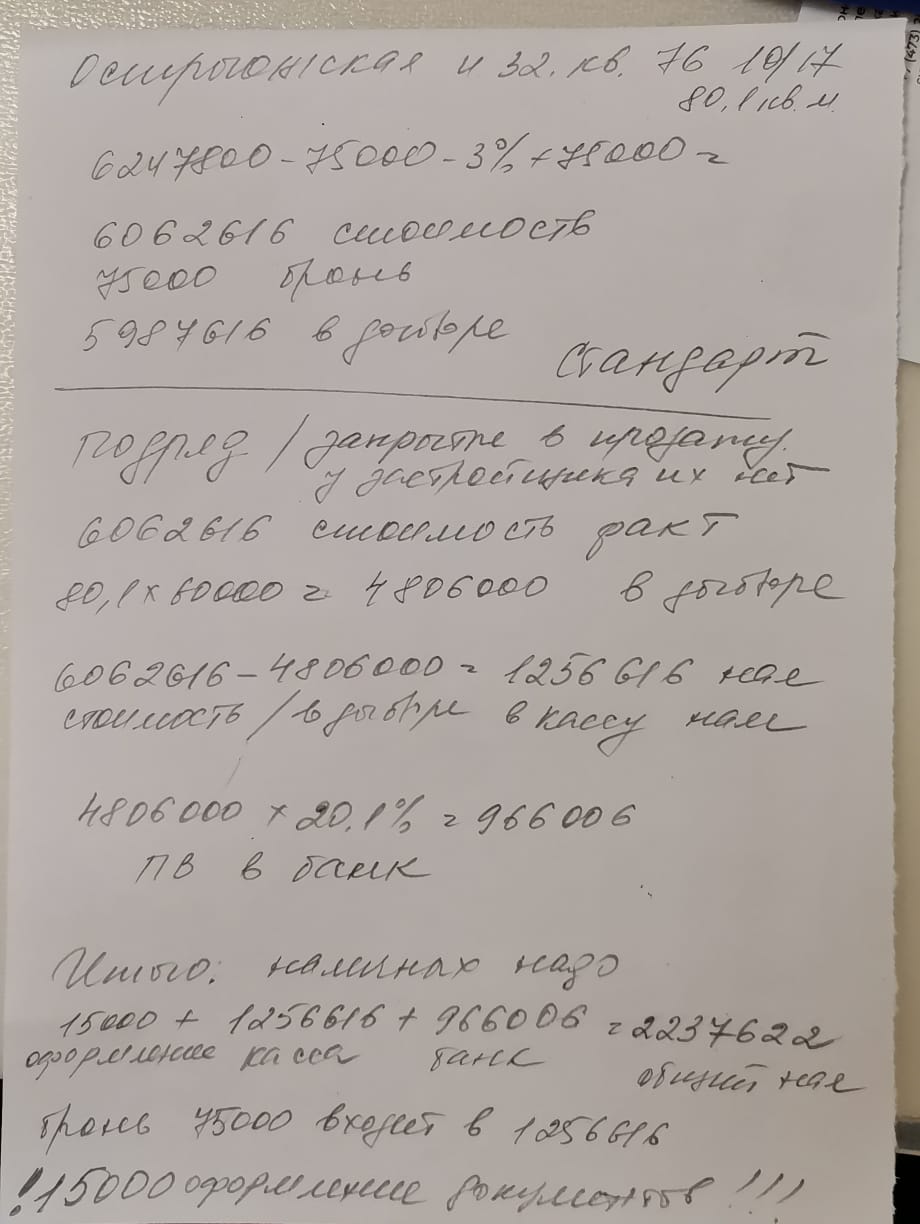 Острогожская и 32. кв. 76 10/17
80,1 кв. м.
6247800 - 75000 - 3% + 75000 =
6062616 стоимость
75000 бронь
5987616 в договоре
Стандарт
Подряд / закрытые в продажу.
у застройщика их нет
6062616 стоимость факт
80,1 х 60000 = 4806000 в договоре
6062616 - 4806000 = 1256616 нал
стоимость / в договоре в кассу нам
4806000 х 20,1% = 966006
ПВ в банк
Итого: наличных надо
15000 + 1256616 + 966006 = 2237622
оформление касса банк
общий нал
бронь 75000 входит в 1256616
!15000 оформление документов !!!